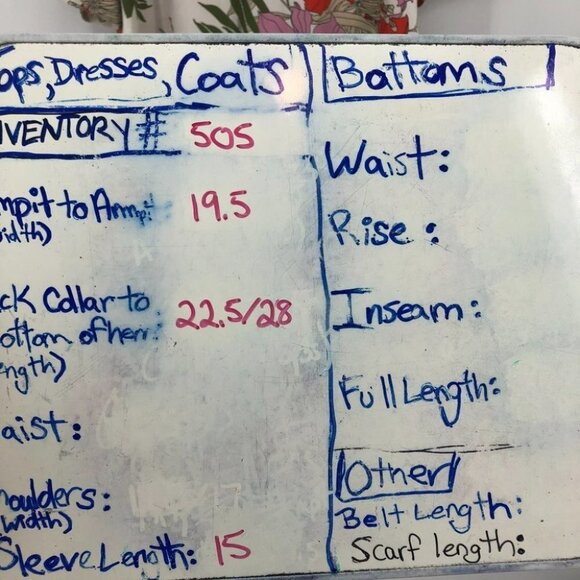 ops, Dresses, Coats
NVENTORY # 505
mpit to Armpit: 19.5
width)
ck Collar to
ottom of hem: 22.5/28
ngth)
aist:
houlders:
width)
Sleeve Length: 15
Bottoms
Waist:
Rise:
Inseam:
Full Length:
Other
Belt Length:
Scarf length: